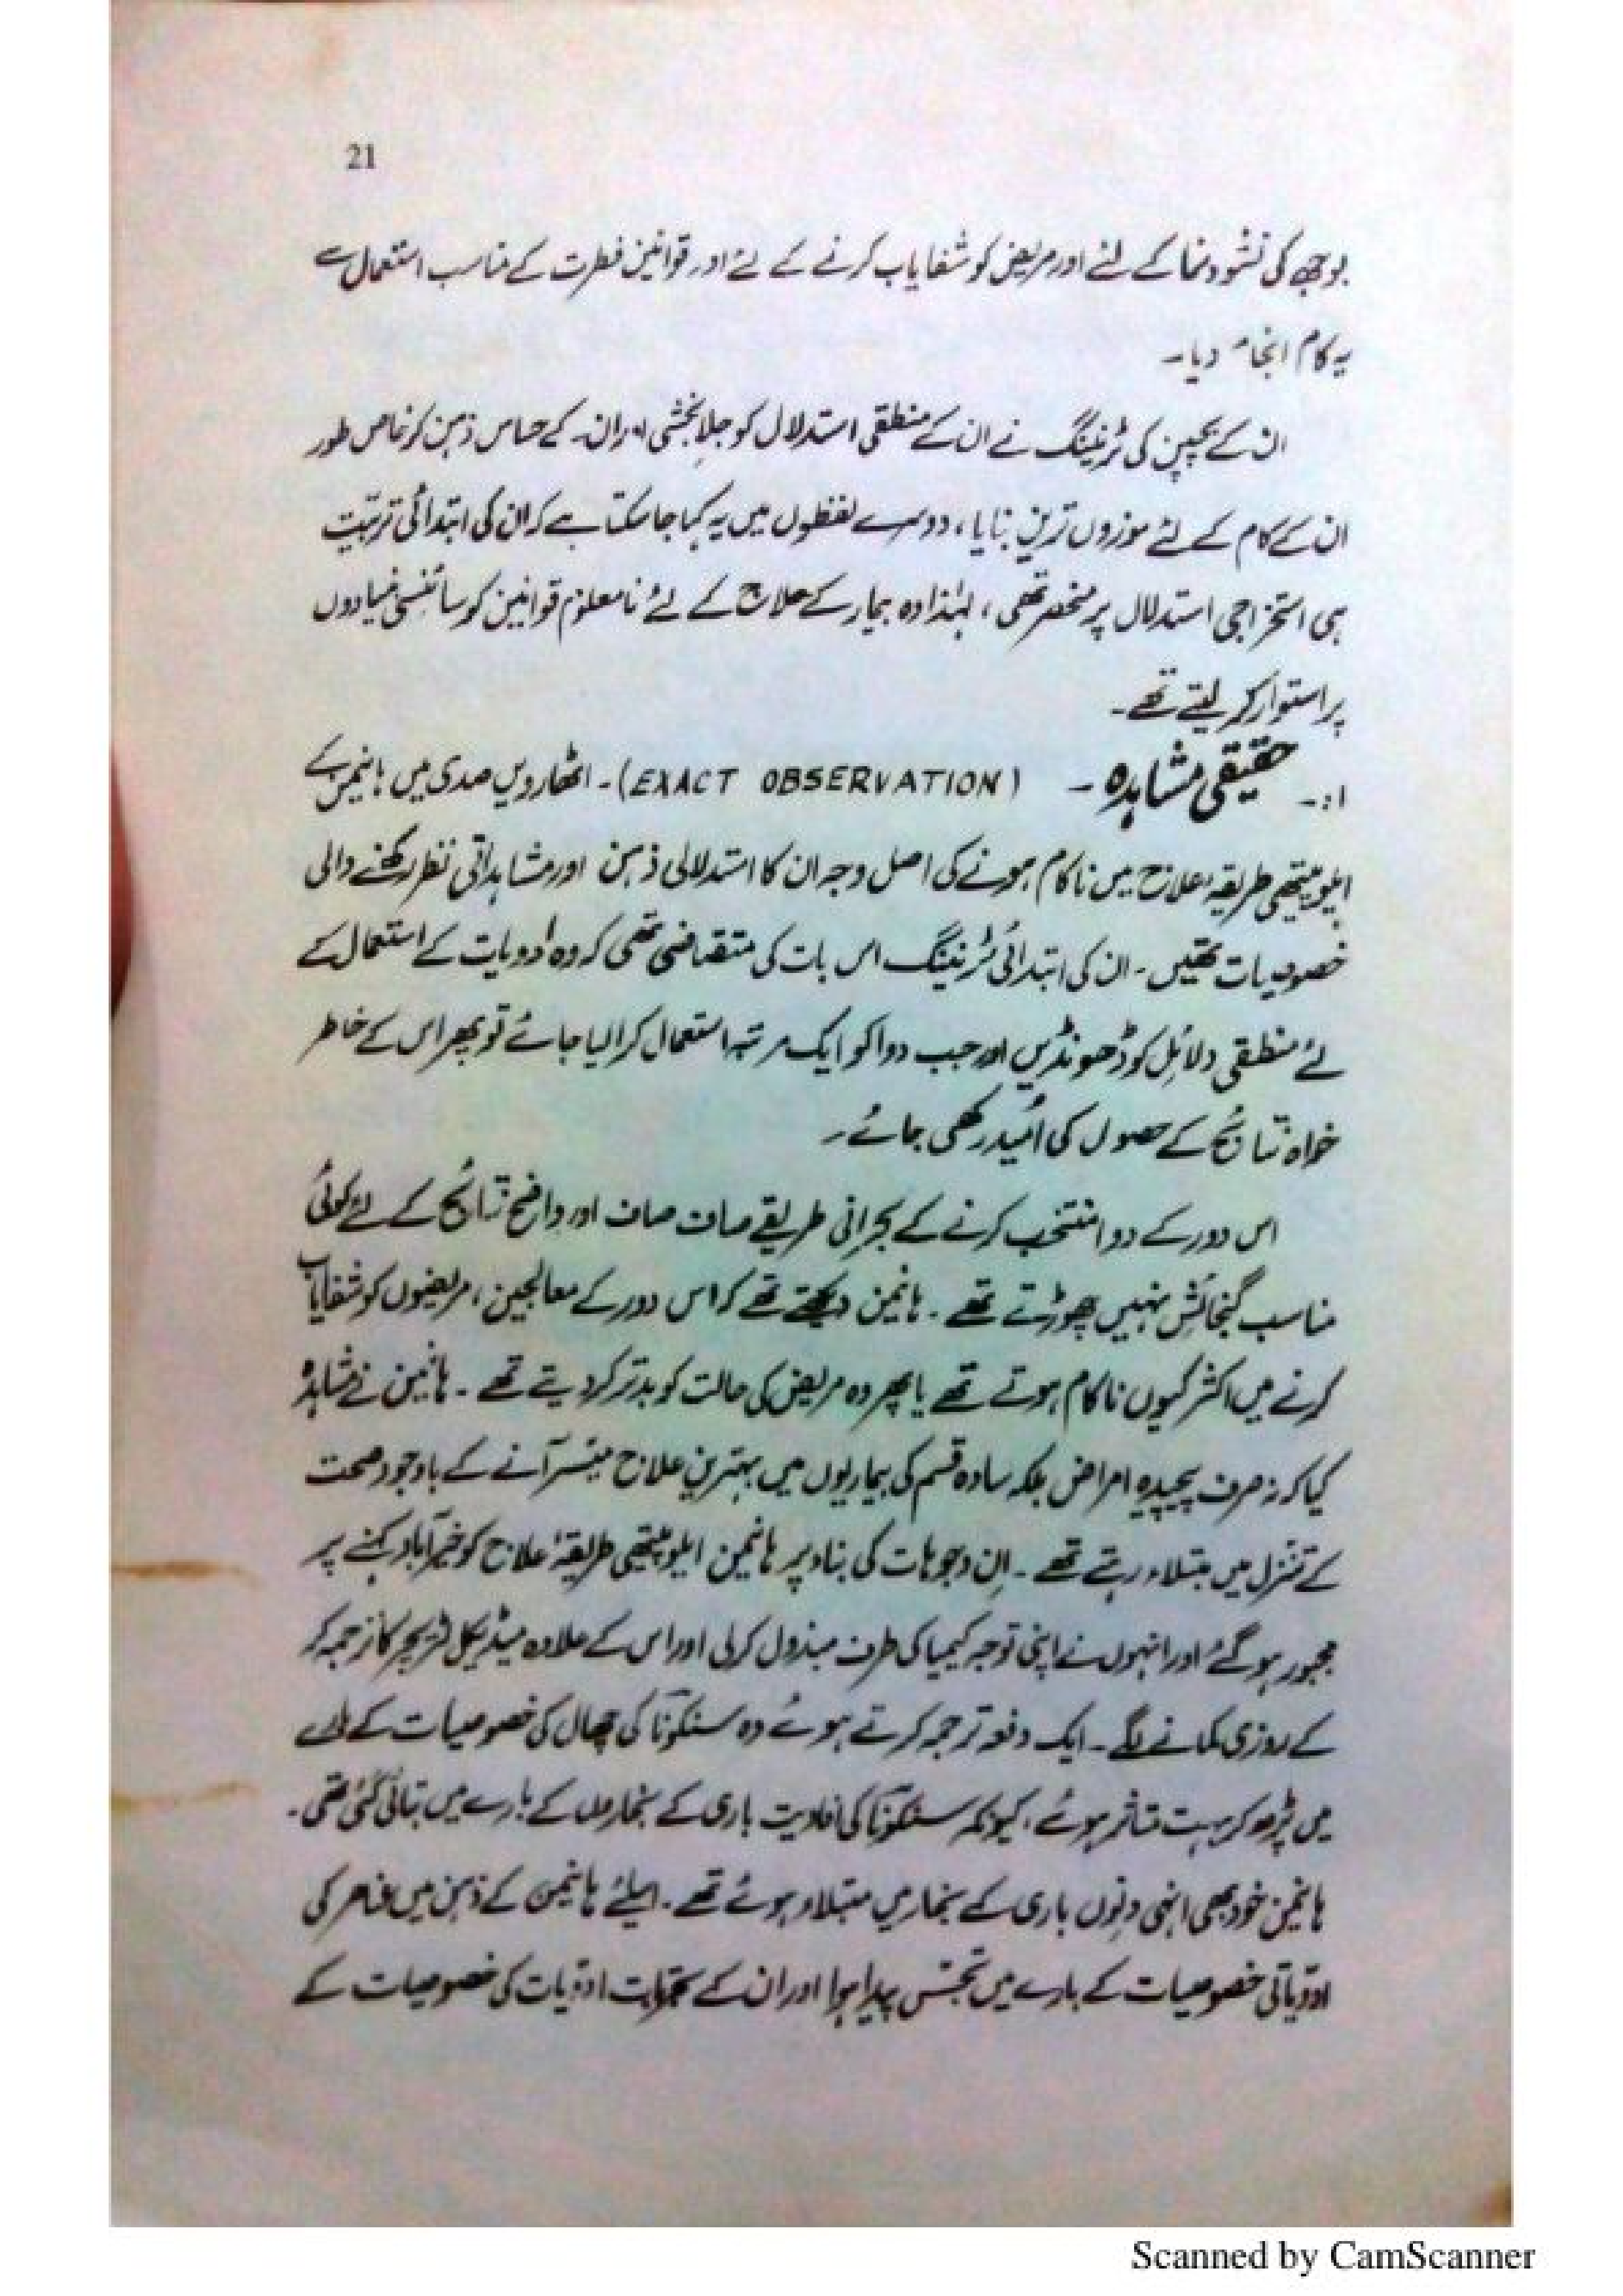 21
بوجھے کی نشوونما کے لئے اور مریض کو شفایاب کرنے کے لئے اور قوانین فطرت کے مناسب استعمال سے
یہ کام انجام دیا۔
ان کے بچپن کی ٹریننگ نے ان کے منطقی استدلال کو جِلا بخشی اور ان کے حساس ذہن کو خاص طور
ان کے کام کے لئے موزوں ترین بنایا، دوسرے لفظوں میں یہ کہا جا سکتا ہے کہ ان کی ابتدائی تربیت
ہی استخراجی استدلال پر منحصر تھی، لہٰذا وہ بیمار کے علاج کے لئے نامعلوم قوانین کو سائنسی بنیادوں
پر استوار کر لیتے تھے۔
۱:۔ حقیقی مشاہدہ ۔ (EXACT OBSERVATION)۔ اٹھارویں صدی میں ہانیمن کے
ایلوپیتھی طریقہء علاج میں ناکام ہونے کی اصل وجہ ان کا استدلالی ذہن اور مشاہداتی نظر رکھنے والی
خصوصیات تھیں۔ ان کی ابتدائی ٹریننگ اس بات کی متقاضی تھی کہ وہ ادویات کے استعمال کے
لئے منطقی دلائل کو ڈھونڈیں اور جب دوا کو ایک مرتبہ استعمال کرا لیا جائے تو پھر اس کے خاطر
خواہ نتائج کے حصول کی اُمید رکھی جائے۔
اس دور کے دوا منتخب کرنے کے بحرانی طریقے صاف صاف اور واضح نتائج کے لئے کوئی
مناسب گنجائش نہیں چھوڑتے تھے۔ ہانیمن دیکھتے تھے کہ اس دور کے معالجین، مریضوں کو شفایاب
کرنے میں اکثر کیوں ناکام ہوتے تھے یا پھر وہ مریض کی حالت کو بدتر کر دیتے تھے۔ ہانیمن نے مشاہدہ
کیا کہ نہ صرف پیچیدہ امراض بلکہ سادہ قسم کی بیماریوں میں بہترین علاج میسّر آنے کے باوجود صحت
کے تنزل میں مبتلاء رہتے تھے۔ اِن وجوہات کی بناء پر ہانیمن ایلوپیتھی طریقۂ علاج کو خیرآباد کہنے پر
مجبور ہو گئے اور انہوں نے اپنی توجہ کیمیا کی طرف مبذول کر لی اور اس کے علاوہ میڈیکل لٹریچر کا ترجمہ کر
کے روزی کمانے لگے۔ ایک دفعہ ترجمہ کرتے ہوئے وہ سنکونا کی چھال کی خصوصیات کے بارے
میں پڑھ کر بہت متاثر ہوئے، کیونکہ سنکونا کی افادیت باری کے بخاروں کے بارے میں بتائی گئی تھی۔
ہانیمن خود بھی انہی دنوں باری کے بخار میں مبتلاء ہوئے تھے۔ اسلئے ہانیمن کے ذہن میں عناصر کی
ادویاتی خصوصیات کے بارے میں تجسّس پیدا ہوا اور ان کے تجربات ادویات کی خصوصیات کے
Scanned by CamScanner